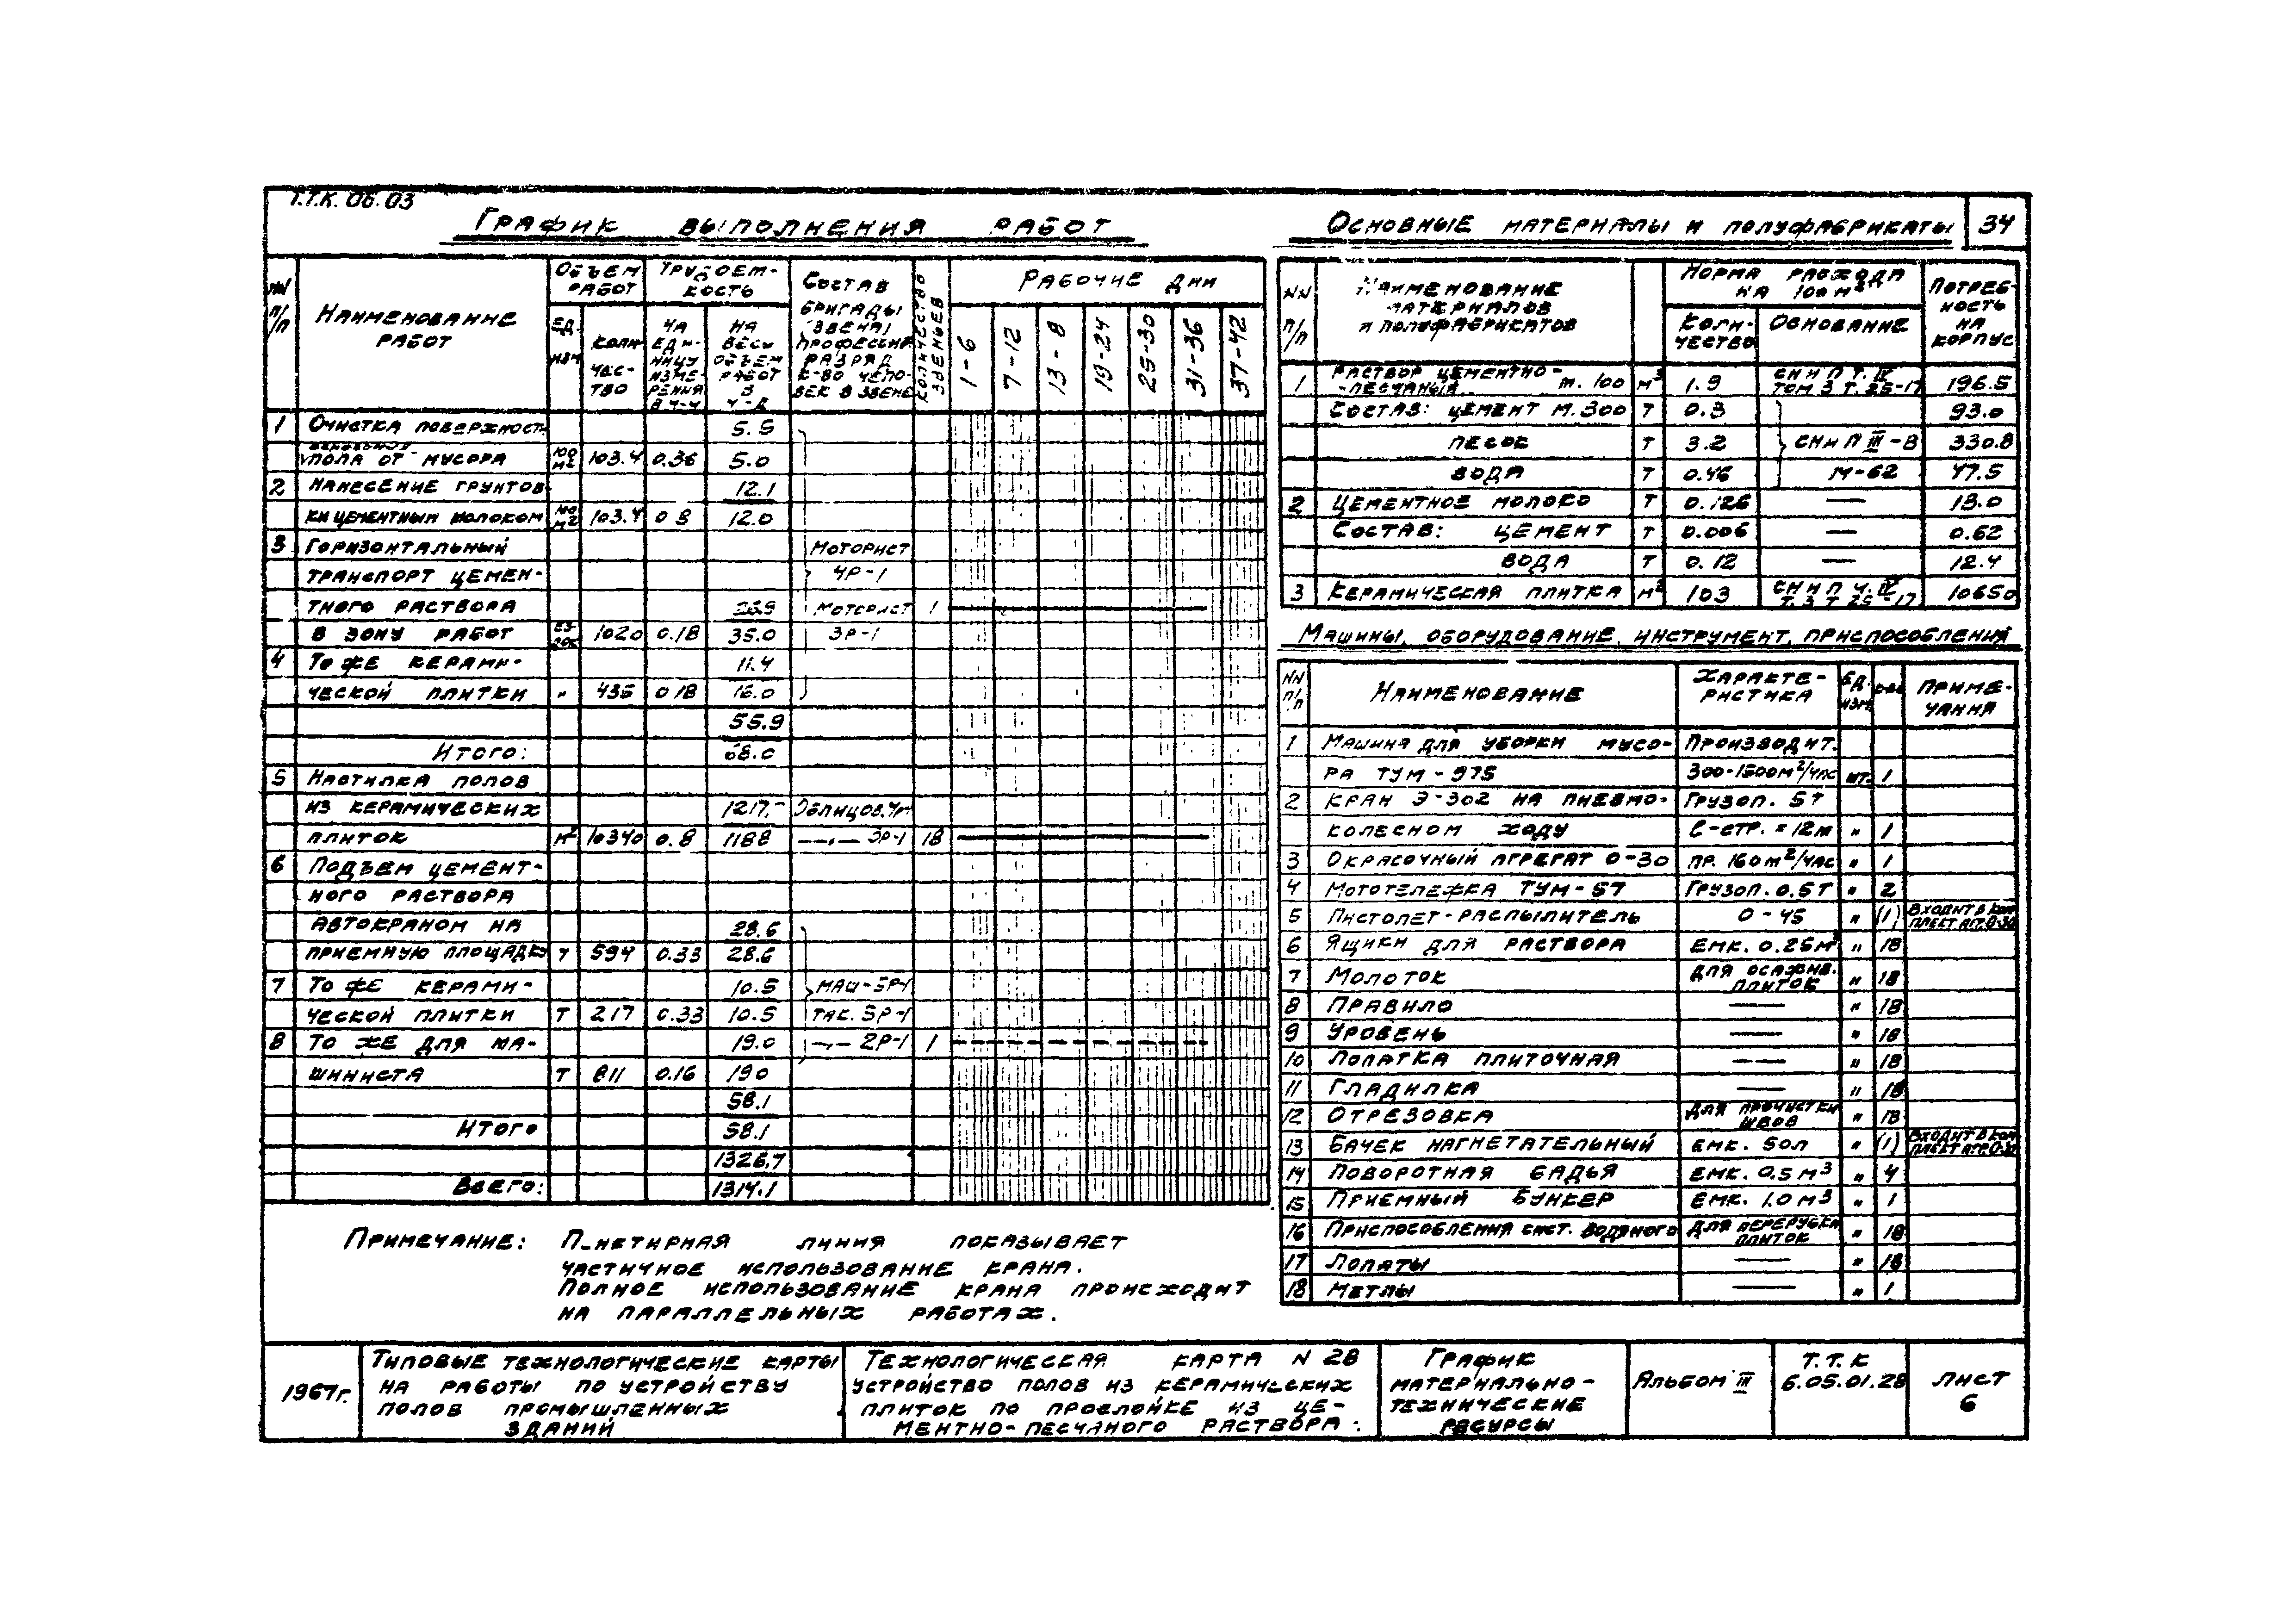 Т.Т.К. 06.03
График выполнения работ
NN п/п
Наименование работ
Объем работ
Ед. изм.
Коли-
чес-
тво
Трудоем-
кость
на еди-
ницу
изме-
рения
в ч-ч
на
весь
объем
работ
в
ч-д
Состав
бригады
(звена)
профессия
разряд
к-во чело-
век в звене
Количество
звеньев
Рабочие дни
1-6 7-12 13-8 19-24 25-30 31-36 37-42
1 Очистка поверхност. 5.5
пола от мусора 100 м2 103.4 0.36 5.0
2 Нанесение грунтов- 12.1
ки цементным молоком 100 м2 103.4 0 8 12.0
3 Горизонтальный Моторист
транспорт цемен- 4Р-1
тного раствора 26.9 Моторист 1
в зону работ 1020 0.18 35.0 3Р-1
4 То же керами- 11.4
ческой плитки " 435 0 18 16.0
55.9
Итого: 68.0
5 Настилка полов
из керамических 1217,- Облицов. 4р-1
плиток м2 10340 0.8 1188 —"— 3Р-1 18
6 Подъем цемент-
ного раствора
автокраном на 28.6
приемную площадку т 594 0.33 28.6
7 То же керами- 10.5 маш-5Р-1
ческой плитки т 217 0.33 10.5 так. 5Р-1
8 То же для ма- 19.0 —"— 2Р-1 1
шиниста т 811 0.16 190
58.1
Итого 58.1
1326,7
Всего: 1314.1
Примечание: Пунктирная линия показывает
частичное использование крана.
Полное использование крана происходит
на параллельных работах.
Основные материалы и полуфабрикаты
34
NN п/п
Наименование
материалов
и полуфабрикатов
Норма расхода
на 100 м2
Коли-
чество
Основание
Потреб-
ность
на
корпус
1 Раствор цементно-
-песчаный м. 100 м3 1.9 СНиП т. IV
том 3 т. 25-17 196.5
Состав: цемент м. 300 т 0.3 93.0
песок т 3.2 СНиП III-В 330.8
вода т 0.46 14-62 47.5
2 Цементное молоко т 0.126 — 13.0
Состав: цемент т 0.006 — 0.62
вода т 0.12 — 12.4
3 Керамическая плитка м2 103 СНиП ч. IV
т. 3 т 25-17 10650
Машины, оборудование, инструмент, приспособления
NN п/п
Наименование
Характе-
ристика
Ед. изм.
Приме-
чания
1 Машина для уборки мусо- Производит.
ра ТУМ-975 300-1500м2/час шт. 1
2 Кран Э-302 на пневмо- Грузоп. 5т
колесном ходу С-стр. = 12м " 1
3 Окрасочный агрегат О-30 пр. 160м2/час " 1
4 Мототележка ТУМ-57 Грузоп. 0.5т " 2
5 Пистолет-распылитель О-45 " (1) Входит в ком-
плект агг. О-30
6 Ящики для раствора Емк. 0.25м3 " 18
7 Молоток для осажив.
плиток " 18
8 Правило — " 18
9 Уровень — " 18
10 Лопатка плиточная — " 18
11 Гладилка — " 18
12 Отрезовка для прочистки
швов " 18
13 Бачек нагнетательный Емк. 50л " (1) Входит в ком-
плект агг. О-30
14 Поворотная бадья Емк. 0.5м3 " 4
15 Приемный бункер Емк. 1.0м3 " 1
16 Приспособления сист. Водяного для перерубки
плиток " 18
17 Лопаты — " 18
18 Метлы — " 1
1967г.
Типовые технологические карты
на работы по устройству
полов промышленных
зданий
Технологическая карта N 28
устройство полов из керамических
плиток по прослойке из це-
ментно-песчаного раствора.
График
материально-
технические
ресурсы
Альбом III
Т.Т.К
6.05.01.28
лист
6